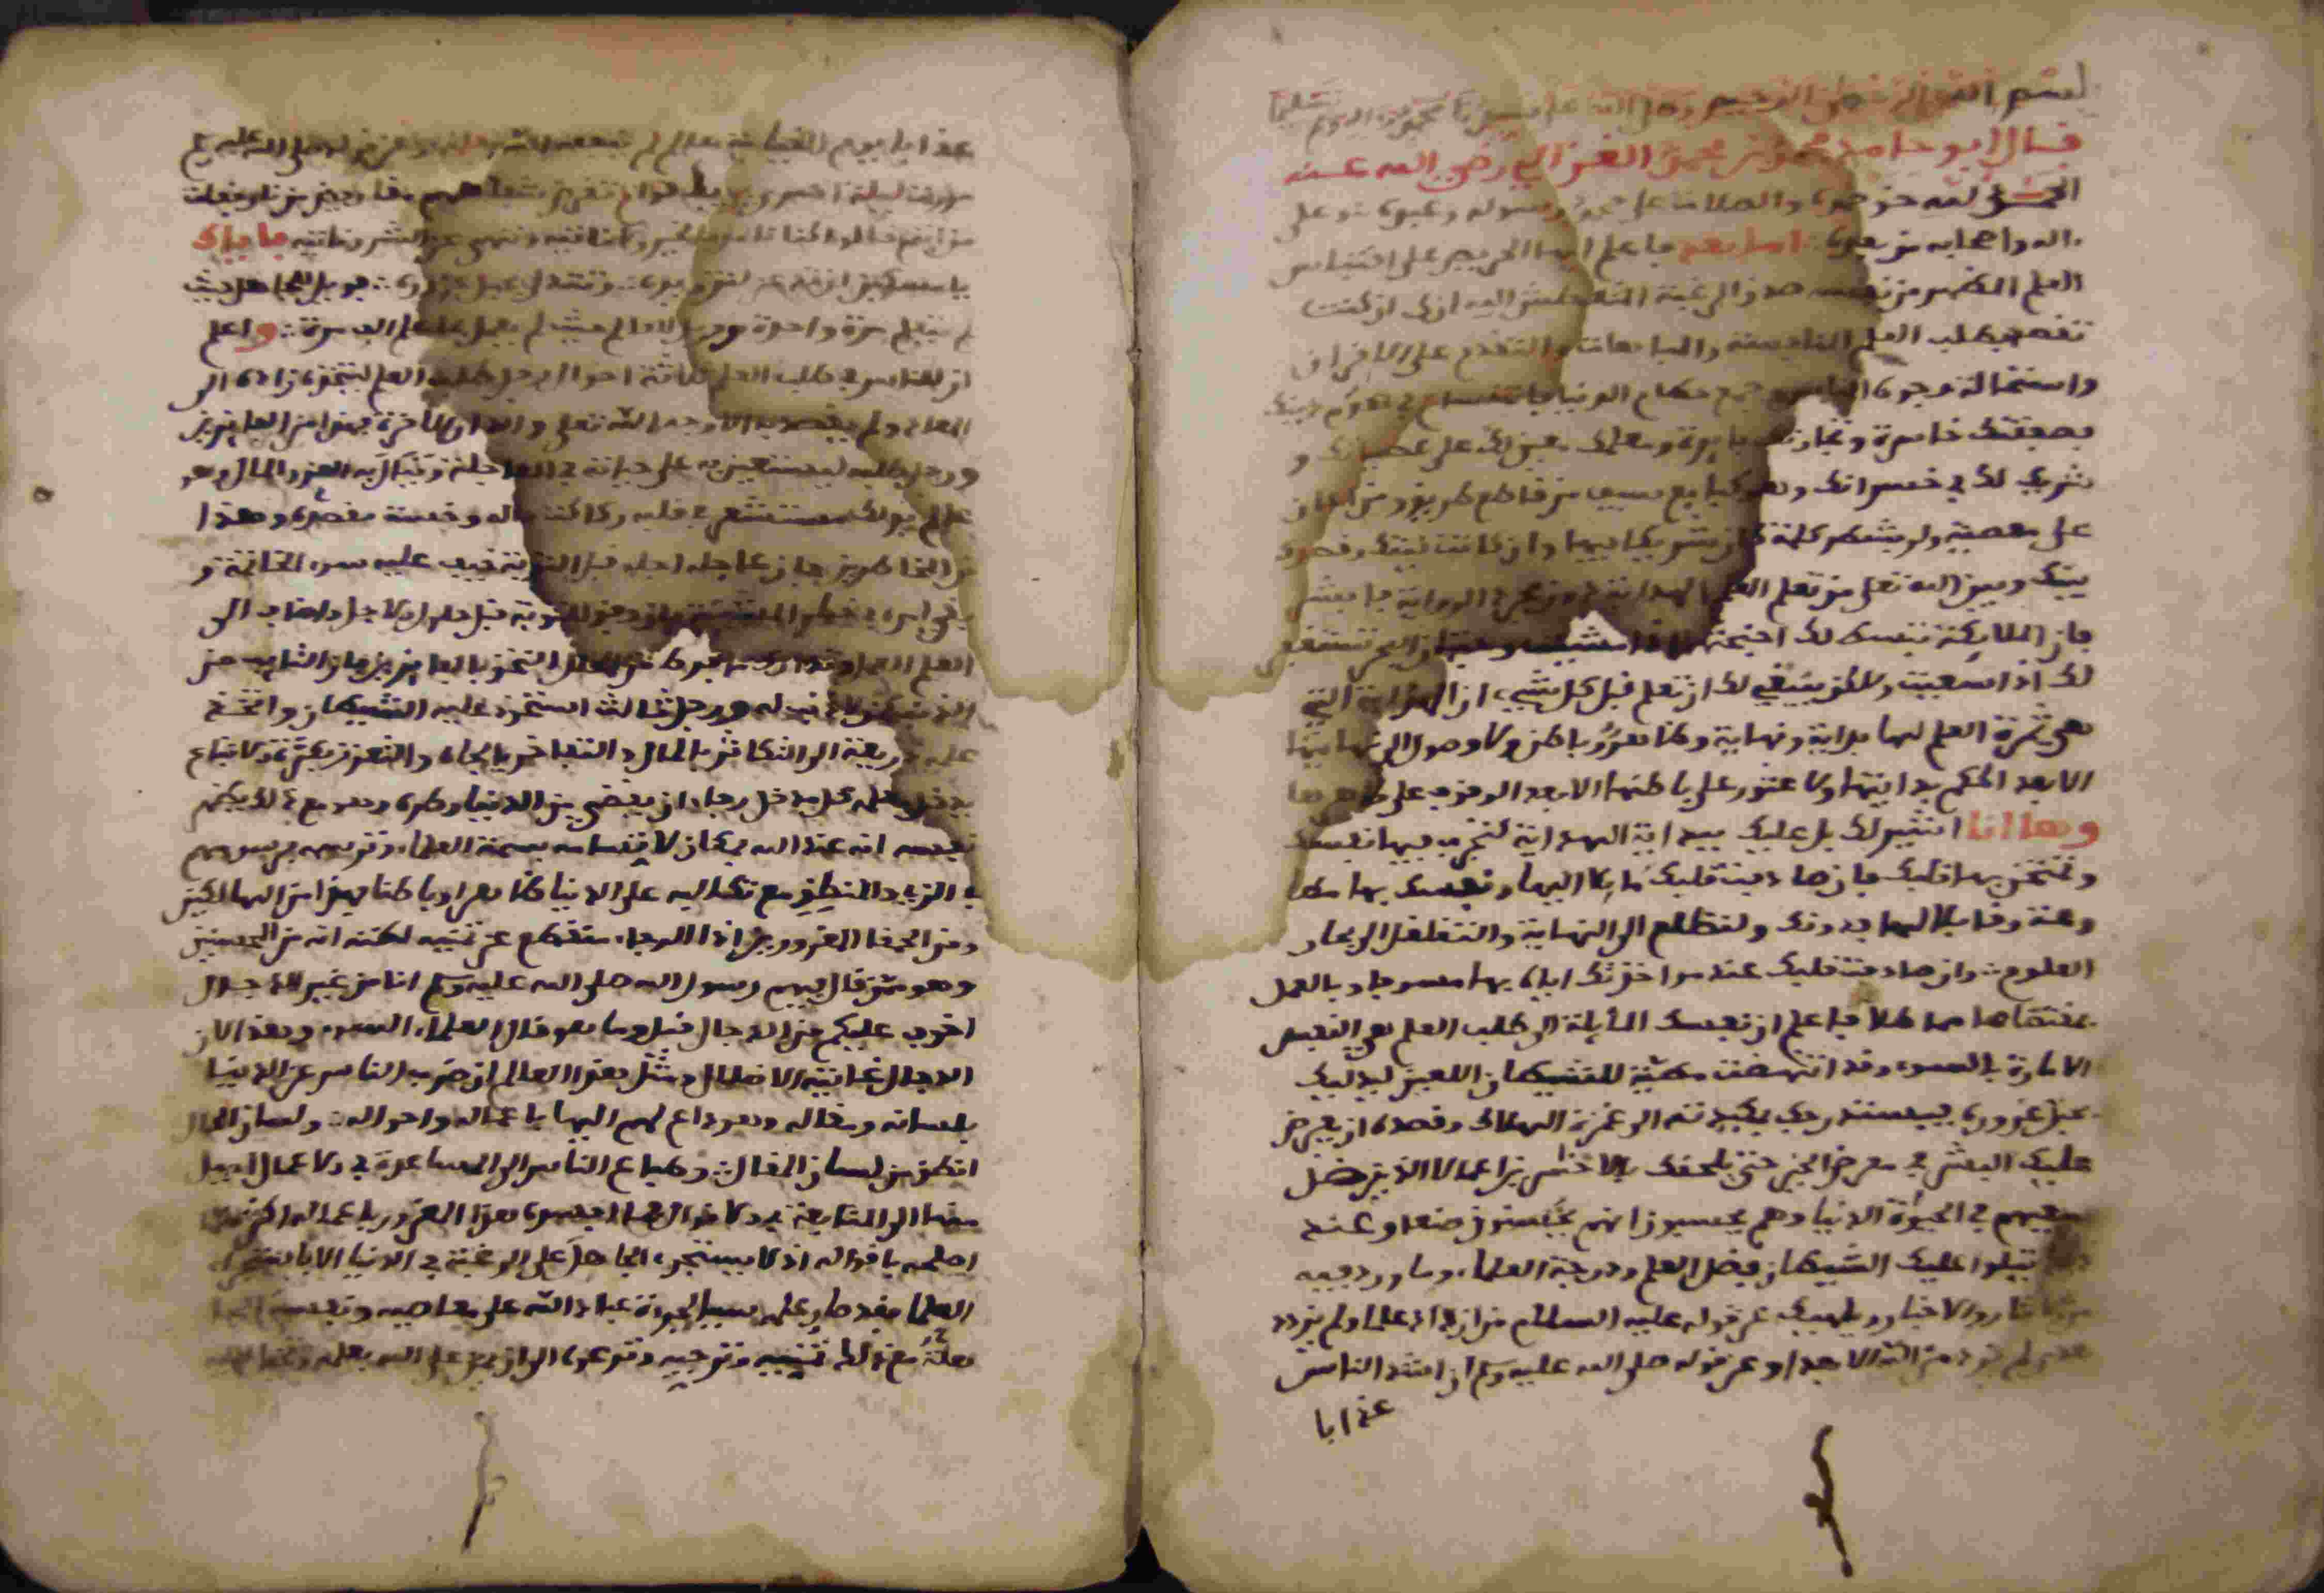 بسم الله الرحمن الرحيم وصلى الله على سيدنا محمد وآله وسلم تسليما
قال ابو حامد محمد بن محمد الغزالي رضي الله عنه
الحمد لله حق حمده والصلاة على محمد رسوله وعبده وعلى
اله واصحابه من بعده اما بعد فاعلم ايها الحريص على اقتباس
العلم المظهر من نفسه صدق الرغبة التعطش اليه انك ان كنت
تقصد بطلب العلم المنافسة والمباهات والتقدم على الاقران
واستمالة وجوه الناس جمع حطام الدنيا فانت ساع في هدم دينك
فصفقتك خاسرة وتجارتك بايرة ومعلمك معين لك على عصيانك و
شريك لك في خسرانك وهو كبايع سيف من قاطع طريق ومن اعان
على معصية ولو بشطر كلمة كان شريكا فيها وان كانت نيتك وقصدك
بينك وبين الله تعلى من تعلم العلم الهداية دون مجرد الرواية فابشر
فان الملايكة تبسط لك اجنحتها اذا مشيت وحيتان البحر تستغفر
لك اذا سعيت ولاكن ينبغي لك ان تعلم قبل كل شيء ان الهداية التي
هي ثمرة العلم لها بداية ونهاية وظاهر وباطن ولا وصول الى نهايتها
الا بعد احكام بدايتها ولا عثور على باطنها الا بعد الوقوف على ظاهرها
وها انا اشير لك بل عليك ببداية الهداية لتجرب فيها نفسك
وتمتحن بها قلبك فان صادفت قلبك مايلا اليها ونفسك بها مطا
وعة وقابلا لها فدونك والتطلع الى النهاية والتغلغل الى بحار
العلوم وان صادفت قلبك عند مواخذتك اياه بها مسوفا وبالعمل
بمقتضاها مماطلا فاعلم ان نفسك المايلة الى طلب العلم هي النفس
الامارة بالسوء وقد انتهضت مطية للشيطان اللعين ليدليك
بحبل غروره فيستدرجك بمكيدته الى غمرة الهلاك وقصده ان يعرض
عليك الشر في معرض الخير حتى يلحقك بالاخسرين اعمالا الذين ضل
سعيهم في الحيوة الدنيا وهم يحسبون انهم يحسنون صنعا وعند
يتلوا عليك الشيطان فضل العلم ودرجة العلماء وما ورد فيه
من الاثار والاخبار ويلهيك عن قوله عليه السلام من ازداد علما ولم يزدد
هدى لم يزدد من الله الا بعدا وعن قوله صلى الله عليه وسلم ان اشد الناس
عذابا
عذابا يوم القيامة عالم لم ينفعه الله بعلمه وعن قوله صلى الله عليه وسلم
مررت ليلة اسري بي باقوام تقرض شفاههم بمقاريض من نار فقلت
من انتم فقالوا كنا نامر بالخير ولا ناتيه وننهى عن الشر وناتيه فاياك
يا مسكين ان تذعن لتزويره وتتدلى بحبل غروره فويل للجاهل حيث
لم يتعلم مرة واحدة وويل للعالم حيث لم يعمل بما علم الف مرة واعلم
ان الناس في طلب العلم ثلاثة احوال رجل طلب العلم ليتخذه زاده الى
المعاد ولم يقصد به الا وجه الله تعلى والدار الاخرة فهذا من الفايزين
ورجل طلبه ليستعين به على حياته في العاجلة وينال به العز والمال وهو
عالم بذلك مستشعر في قلبه ركاكة حاله وخسة مقصده وهذا
من المخاطرين فان عاجله اجله قبل التوبة خيف عليه سوء الخاتمة و
بقي امره في خطر المشيئة وان وفق للتوبة قبل حلول الاجل واضاف الى
العلم العمل وتدارك ما فرط من الخلل التحق بالفايزين فان التايب من
الذنب كمن لا ذنب له ورجل ثالث استحوذ عليه الشيطان واتخذ
علمه ذريعة الى التكاثر بالمال والتفاخر بالجاه والتعزز بكثرة الاتباع
يدخل بعلمه كل مدخل رجاء ان يقضي من الدنيا وطره وهو مع ذلك يضمر
في نفسه انه عند الله بمكان لاتسامه بسمة العلماء وترسمه برسومهم
في الزي والمنطق مع تكالبه على الدنيا ظاهرا وباطنا فهذا من الهالكين
ومن الحمقا المغرورين اذ الرجاء منقطع عن توبته لظنه انه من المحسنين
وهو ممن قال فيهم رسول الله صلى الله عليه وسلم انا من غير الدجال
اخوف عليكم من الدجال قيل وما هو قال العلماء السوء وهذا لان
الدجال غايته الاضلال ومثل هذا العالم ان صرف الناس عن الدنيا
بلسانه ومقاله وهو داع لهم اليها باعماله واحواله ولسان الحال
انطق من لسان المقال وطباع الناس الى المساعدة في الاعمال اميل
منها الى المتابعة في الاقوال فما افسده هذا المغرور باعماله اكثر مما
اصلحه باقواله اذ لا يستجرء الجاهل على الرغبة في الدنيا الا باستجراء
العلما فقد صار علمه سببا لجرءة عباد الله على معاصيه ونفسه الجا
هلة مع ذلك تمنيه وترجيه وتدعوه الى ان يمن على الله بعلمه